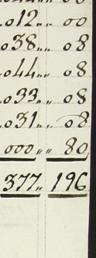 012 „ 00
038 „ 08
044 „ 08
033 „ 08
031 „ 08
000 „ 80
377 „ 196